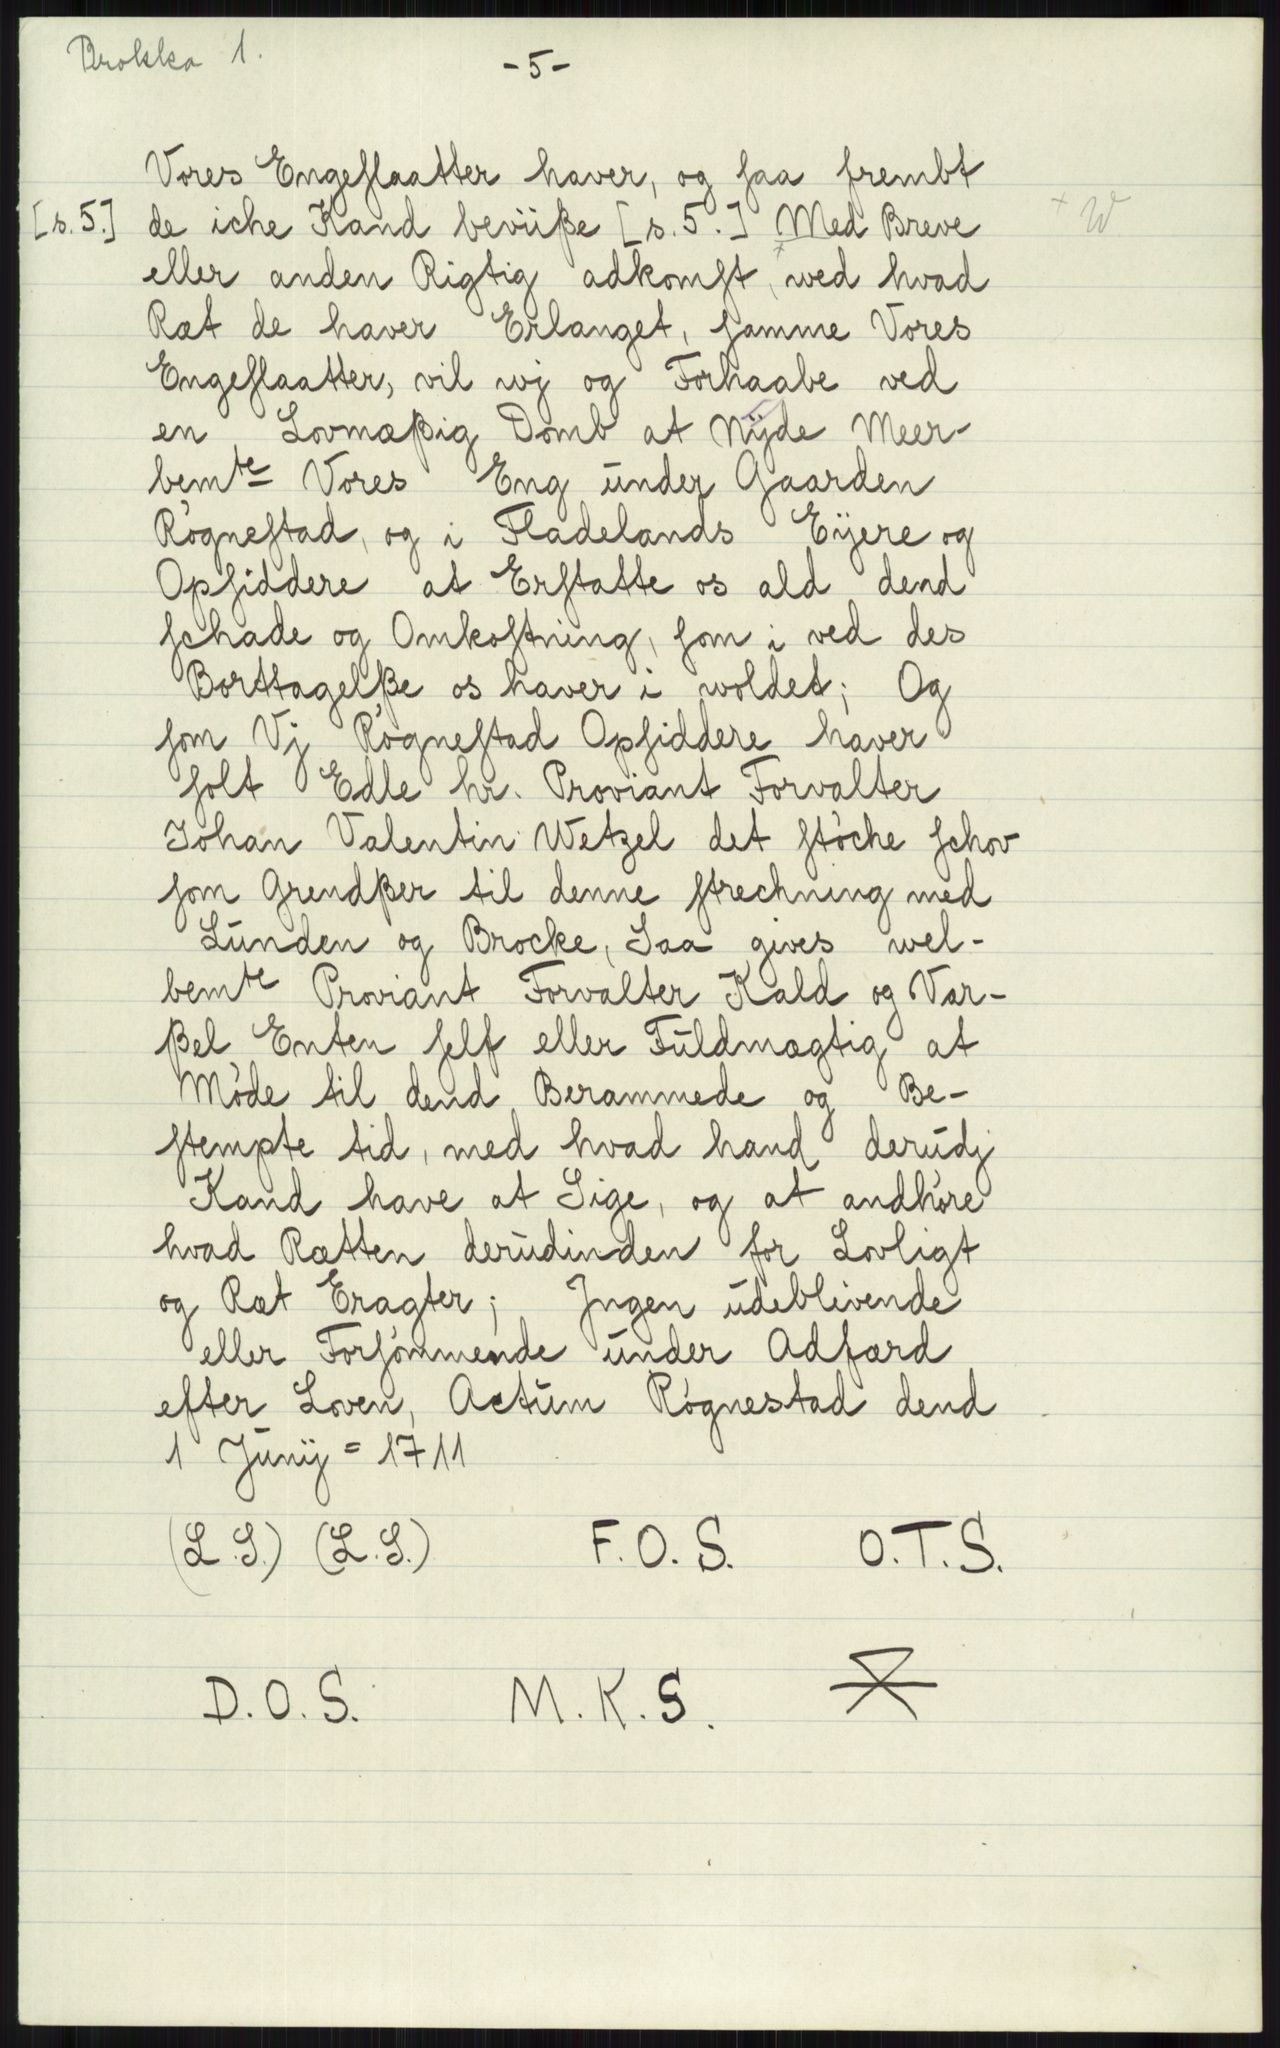 Brokka 1.
-5-
Vores Engeslaatter haver, og saa frembt
[s. 5.] de iche Kand beviiße [s. 5.] Med Breve + W
eller anden Rigtig adkomst, wed hvad
Ræt de haver Erlanget, samme Vores
Engeslaatter, vil wj og Forhaabe ved
en Lovmæßig Domb at Nÿde Meer-
bemte Vores Eng ūnder Gaarden
Rógnestad, og i Fladelands Eÿere og
Opsiddere at Erstatte os ald dend
schade og Omkostning, som i ved des
Borttagelße os haver i woldet; Og
som Vj Rógnestad Opsiddere haver
solt Edle hr. Proviant Forvalter
Johan Valentin Wetzel det stóche schov
som Grendßer til denne strechning med
Lūnden og Brocke, Saa gives wel-
bemte Proviant Forvalter Kald og Var-
ßel Enten self eller Fūldmægtig at
Móde til dend Berammede og Be-
stempte tid, med hvad hand derūdj
Kand have at Sige, og at andhóre
hvad Rætten derūdinden for Lovligt
og Ræt Eragter; Jngen ūdeblivende
eller Forsómmende ūnder Adfærd
efter Loven, Actūm Rógnestad dend
1 Jūnÿ = 1711
(L.S.) (L.S.) F.O.S. O.T.S.
D.O.S. M.K.S.